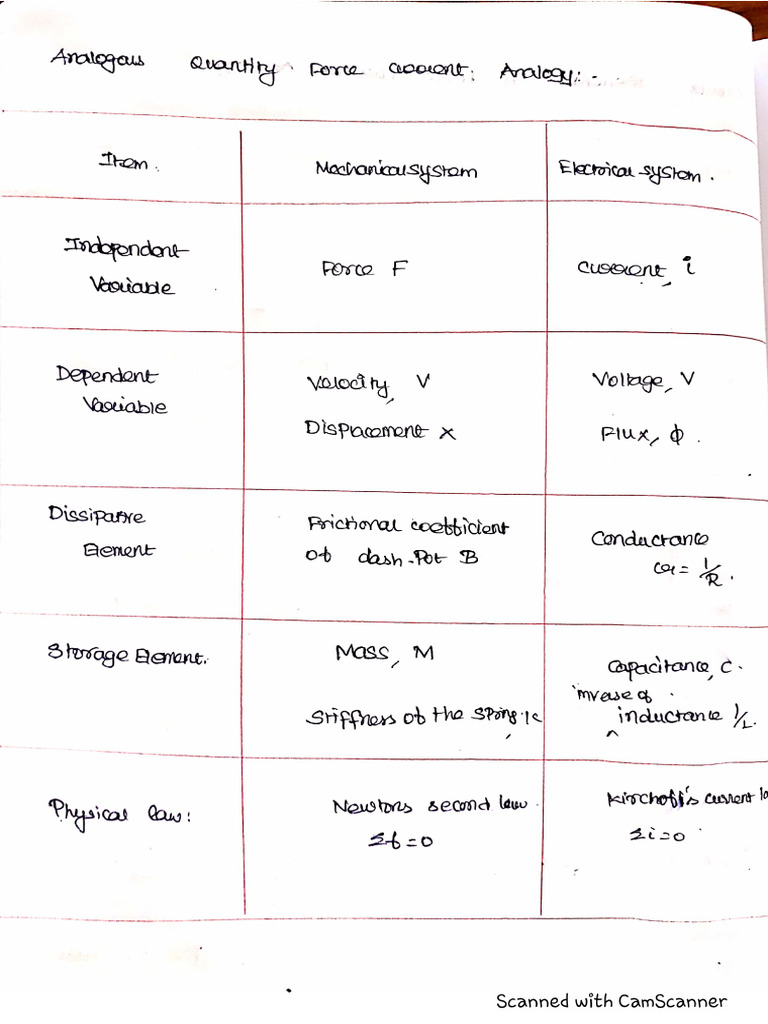 Analogous Quantity. Force current: Analogy:-
Item. Mechanical system Electrical system.
Independent
Variable Force F current, i
Dependent Velocity, V Voltage, V
Variable Displacement x Flux, ϕ.
Dissipative Frictional coefficient Conductance
Element of dash-Pot B G = 1/R.
Storage Element. Mass, M Capacitance, C.
inverse of
Stiffness of the Spring, K ^ inductance 1/L.
Physical law: Newtons second law. Kirchoff's current
Σf=0 Σi=0
Scanned with CamScanner